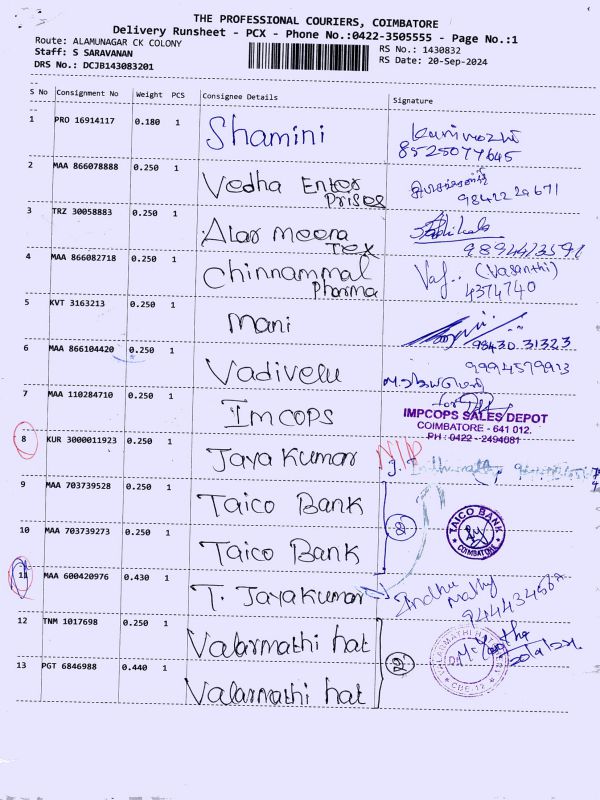 THE PROFESSIONAL COURIERS, COIMBATORE
Delivery Runsheet - PCX - Phone No.:0422-3505555 - Page No.:1
Route: ALAMUNAGAR CK COLONY
Staff: S SARAVANAN
DRS No.: DCJB143083201
RS No.: 1430832
RS Date: 20-Sep-2024
S No Consignment No Weight PCS Consignee Details Signature
1 PRO 16914117 0.180 1 Shamini
8525077645
2 MAA 866078888 0.250 1 Vedha Enter
Prises
9842229671
3 TRZ 30058883 0.250 1 Alar meena
Tex
4 MAA 866082718 0.250 1 Chinnammal (Vasanthi)
Pharma 4374740
5 KVT 3163213 0.250 1 Mani
98430 31323
6 MAA 866104420 0.250 1 Vadivelu 9994579913
7 MAA 110284710 0.250 1 IMCOPS
IMPCOPS SALES DEPOT
COIMBATORE - 641 012.
PH : 0422 - 2494081
8 KUR 3000011923 0.250 1 Jaya Kumar
9 MAA 703739528 0.250 1 Taico Bank
TAICO BANK
COIMBATORE
10 MAA 703739273 0.250 1 Taico Bank
11 MAA 600420976 0.430 1 T. Jayakumar Indhu
Mathy
12 TNM 1017698 0.250 1 Valarmathi hat
13 PGT 6846988 0.440 1 Valarmathi hat
2